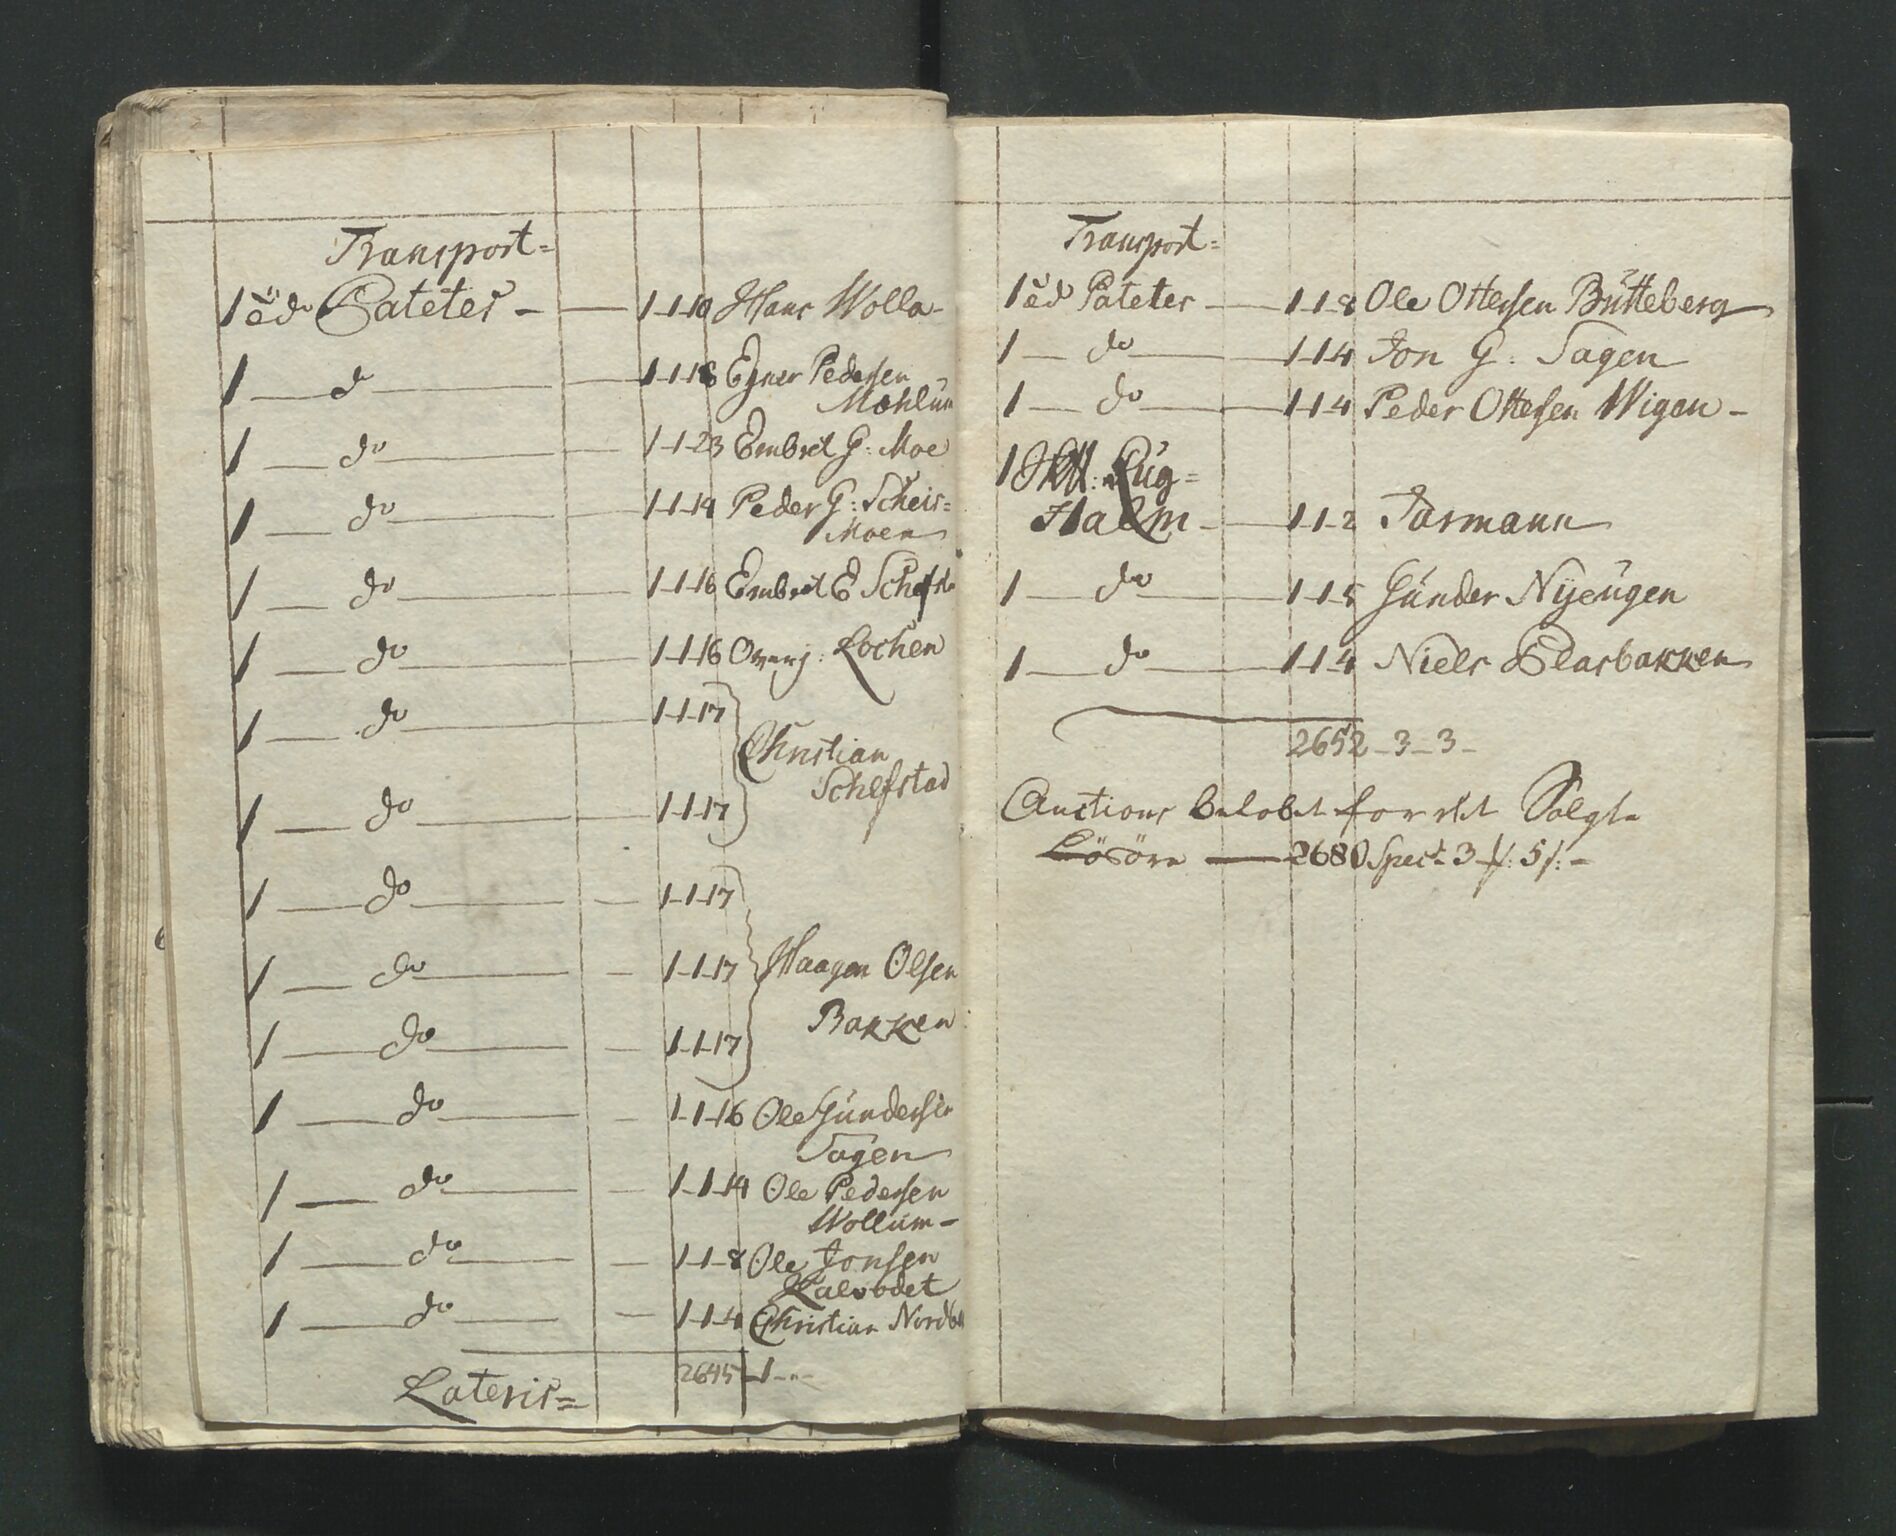 Transport=
1 Td Pateter - 1-1-10 Hans Wolla-
1 do 1-1-18 Ejner Pedersen
Mæhlum
1 do 1-1-23 Embret G: Moe
1 do 1-1-14 Peder G: Scheis=
Moen
1 do 1-1-16 Embret E
1 do 1-1-16 Lochen
1 do 1-1-17
Christian
Schefstad
1 do 1-1-17
1 do 1-1-17
1 do 1-1-17 Haagen Olsen
Bakken
1 do 1-1-17
1 do 1-1-16 Ole Gundersen
Sagen
1 do 1-1-14 Ole Pedersen
Wollum-
1 do 1-1-8 Ole Jonsen
Kalvodet
1 do 1-1-4 Christian
2645-1-"-
Lateris=
Transport=
1 Td Pateter - 1-1-8 Ole Ottersen Bütteberg
1 do 1-1-4 Jon G: Sagen
1 do 1-1-4 Peder Ottesen Wigen-
1 Rug=
Halm - 1-1-2 Tarmann
1 do 1-1-5 Gunder Nyeugen
1 do 1-1-4 Niels Klasbakken
2652-3-3-
Auctions belobet for det Solgte
Lösöre 2680 Spect 3 5